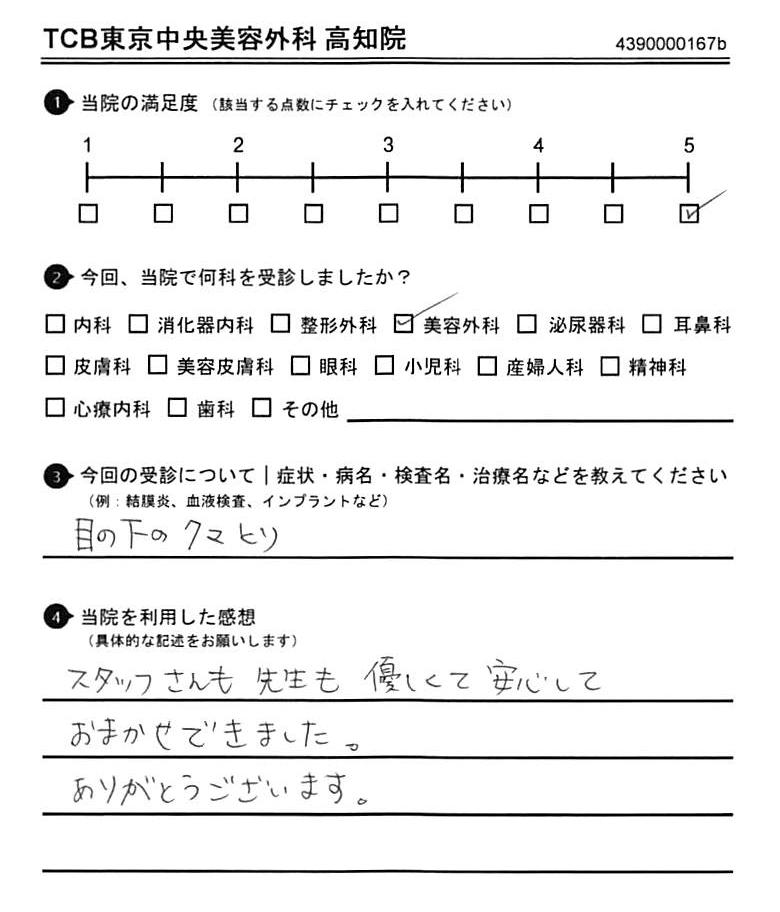 TCB東京中央美容外科 高知院 4390000167b
1 当院の満足度 （該当する点数にチェックを入れてください）
1 2 3 4 5
2 今回、当院で何科を受診しましたか？
内科 消化器内科 整形外科 美容外科 泌尿器科 耳鼻科
皮膚科 美容皮膚科 眼科 小児科 産婦人科 精神科
心療内科 歯科 その他
3 今回の受診について｜症状・病名・検査名・治療名などを教えてください
（例：結膜炎、血液検査、インプラントなど）
目の下のクマとり
4 当院を利用した感想
（具体的な記述をお願いします）
スタッフさんも 先生も 優しくて 安心して
おまかせできました。
ありがとうございます。